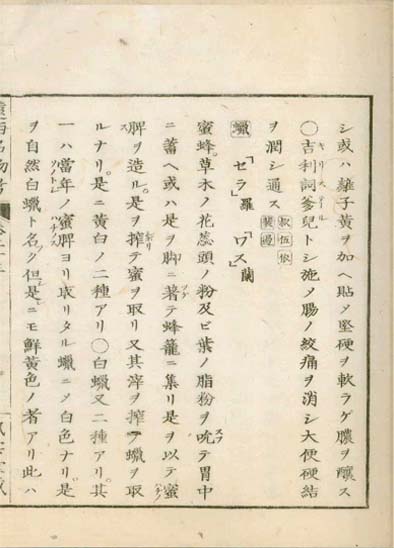 シ或ハ雞子黄ヲ加ヘ貼メ堅硬ヲ軟ラゲ膿ヲ釀ス
〇吉利詞爹兒トシ施メ腸ノ絞痛ヲ消シ大便硬結
キリステル
ヲ潤シ通ス
蠟「セラ」羅「ワス」蘭
蜜蜂草木ノ花蕊頭ノ粉及ビ葉ノ脂粉ヲ吮テ胃中
ニ蓄ヘ或ハ是ヲ脚ニ著テ蜂籠ニ集リ是ヲ以テ蜜
脾ヲ造ル是ヲ搾テ蜜ヲ取リ又其滓ヲ搾テ蠟ヲ取
ルナリ是ニ黄白ノ二種アリ〇白蠟又二種アリ其
一ハ當年ノ蜜脾ヨリ取リタル蠟ニメ白色ナリ是
ヲ自然白蠟ト名ク但是ニモ鮮黄色ノ者アリ此ハ